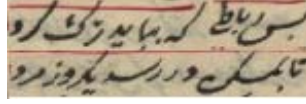 بس رباط که بباید ز تک کرد
تا بمسکن در رسد یکروز مرد